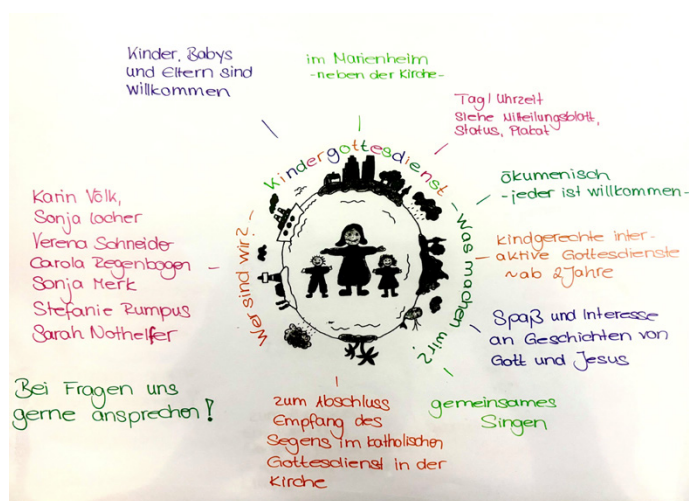 Kinder, Babys
und Eltern sind
willkommen
im Marienheim
-neben der Kirche-
Tag/Uhrzeit
siehe Mitteilungsblatt,
Status, Plakat
Kindergottesdienst
- Was machen wir?
ökumenisch
-jeder ist willkommen-
kindgerechte inter-
aktive Gottesdienste
~ab 2Jahre
Spaß und Interesse
an Geschichten von
Gott und Jesus
gemeinsames
Singen
zum Abschluss
Empfang des
Segens im katholischen
Gottesdienst in der
Kirche
Wer sind wir? -
Karin Völk,
Sonja Locher
Verena Schneider
Carola Regenbogen
Sonja Merk
Stefanie Rumpus
Sarah Nothelfer
Bei Fragen uns
gerne ansprechen!